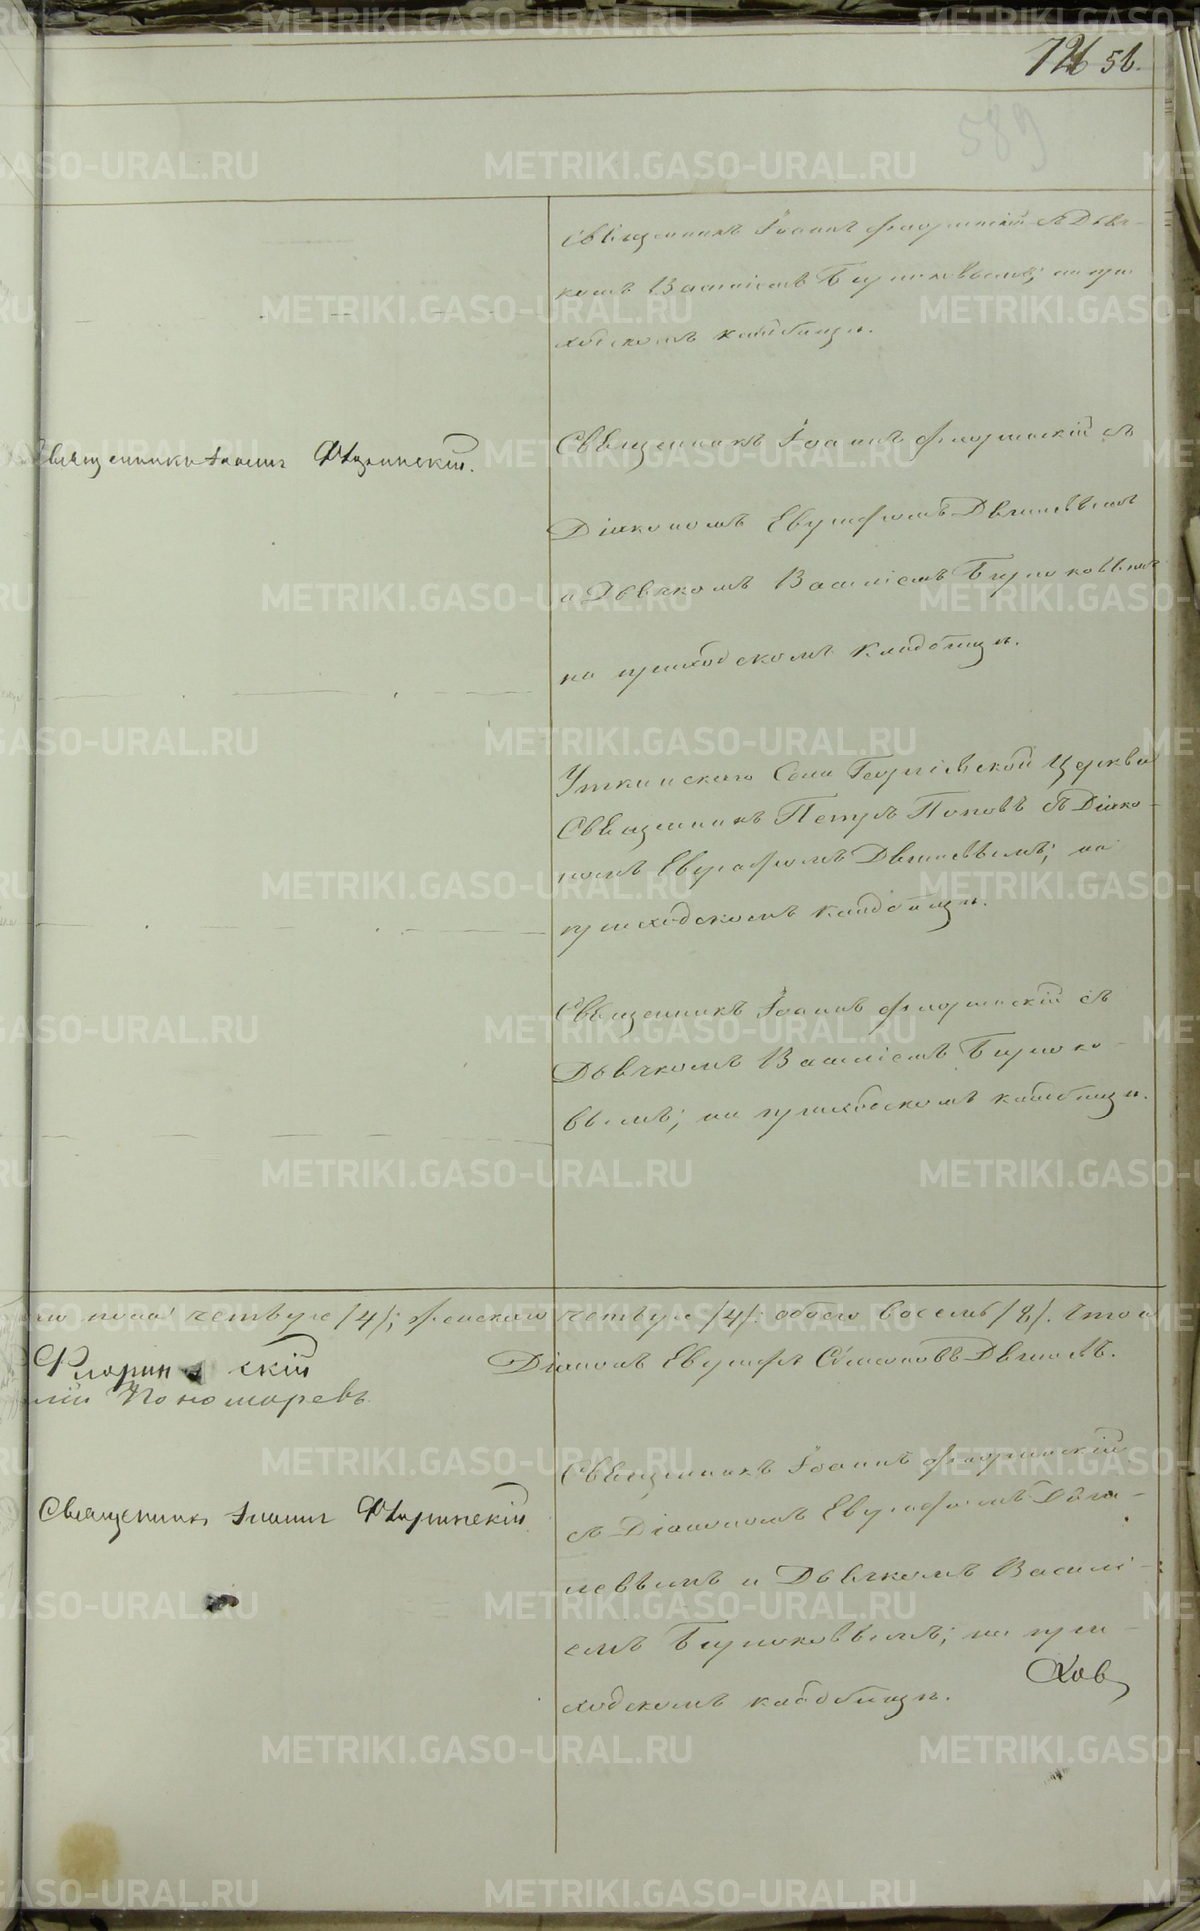 726 56.
589
Священникъ Іоаннъ Флоринскій съ Дьяч-
комъ Василіемъ Бирюковымъ; на при-
ходскомъ кладбищѣ.
Священникъ Іоаннъ Флоринскій.
Священникъ Іоаннъ Флоринскій съ
Діакономъ Евграфомъ
и Дьячкомъ Василіемъ Бирюковымъ
на приходскомъ кладбищѣ.
Уткинскаго Села Георгіевской Церкви
Священникъ Петръ Поповъ съ Діако-
номъ Евграфомъ на
приходскомъ кладбищѣ.
Священникъ Іоаннъ Флоринскій съ
Дьячкомъ Василіемъ Бирюко-
вымъ; на приходскомъ кладбищѣ.
пола четыре /4/; женскаго четыре /4/: обоего восемь /8/. Что и
Флоринскій Діаконъ Евграфъ
Пономаревъ
Священникъ Іоаннъ Флоринскій
Священникъ Іоаннъ Флоринскій
съ Діакономъ Евграфомъ
и Дьячкомъ Васили-
емъ Бирюковымъ; на при-
ходскомъ кладбищѣ.
METRIKI.GASO-URAL.RU